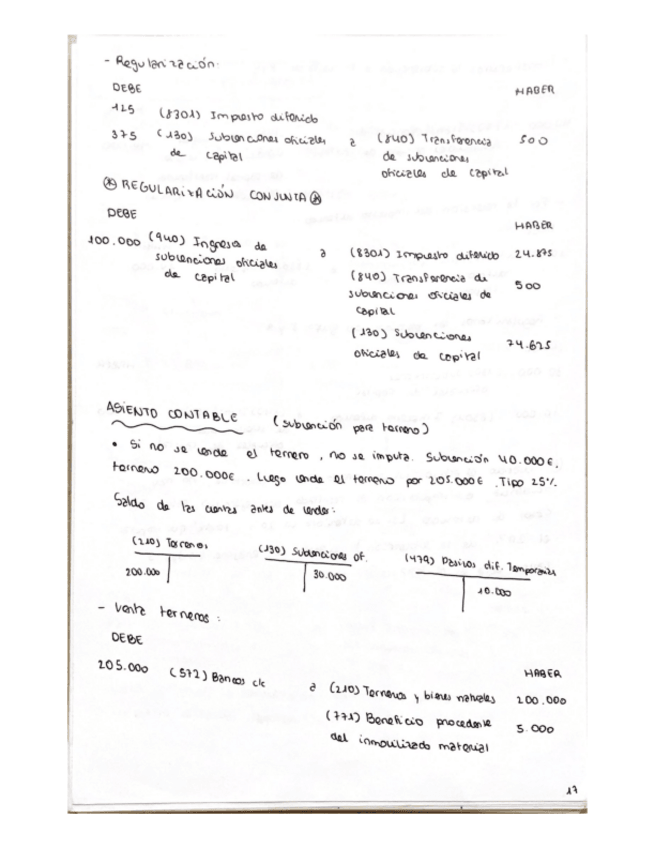 - Regularización:
DEBE HABER
125 (8301) Impuesto diferido
375 (130) Subvenciones oficiales a (840) Transferencia 500
de capital de subvenciones
oficiales de capital
⊛ REGULARIZACIÓN CONJUNTA ⊛
DEBE
HABER
100.000 (940) Ingresos de a (8301) Impuesto diferido 24.875
subvenciones oficiales (840) Transferencia de 500
de capital subvenciones oficiales de
capital
(130) Subvenciones 74.625
oficiales de capital
ASIENTO CONTABLE (subvención para terreno)
• Si no se vende el terreno, no se imputa. Subvención 40.000 €.
terreno 200.000€. Luego vende el terreno por 205.000 €. Tipo 25%.
Saldo de las cuentas antes de vender:
(210) Terrenos (130) Subvenciones of. (479) Pasivos dif. Temporarias
200.000 30.000 10.000
- Venta terrenos:
DEBE
HABER
205.000 (572) Bancos c/c a (210) Terrenos y bienes naturales 200.000
(771) Beneficio procedente 5.000
del inmovilizado material
17